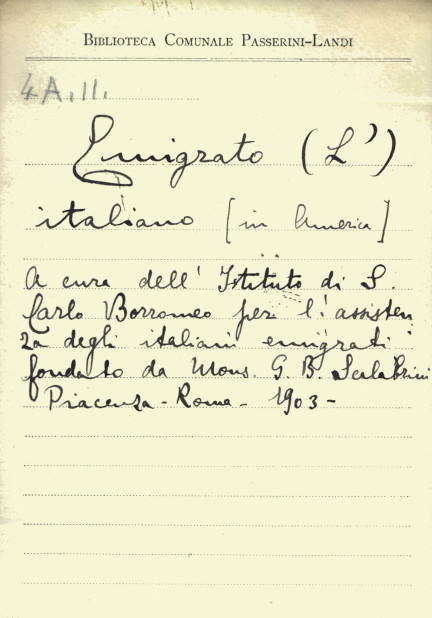 BIBLIOTECA COMUNALE PASSERINI-LANDI
4A.II.
Emigrato (L')
italiano [in America]
A cura dell' Istituto di S.
Carlo Borromeo per l' assisten
za degli italiani emigrati
fondato da Mons. G. B. Scalabrini
Piacenza - Roma - 1903 -